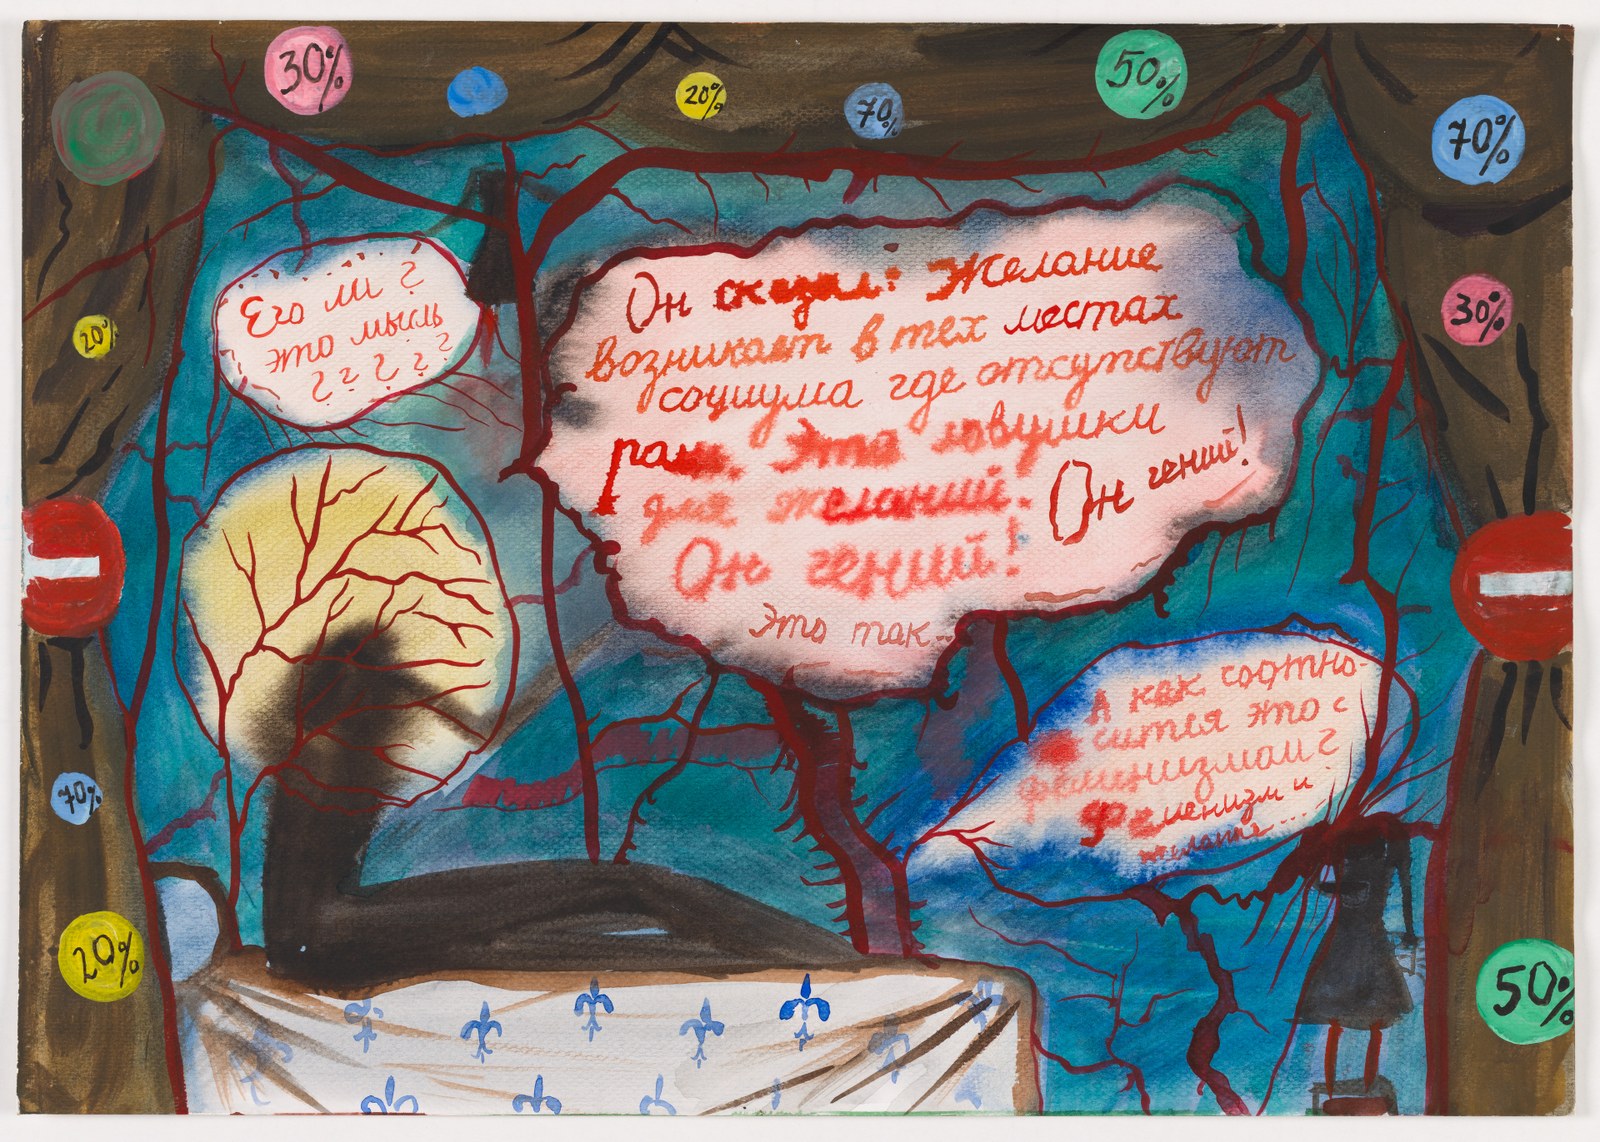 30%
20%
70%
50%
70%
20%
30%
Его ли ?
это мысль
? ? ? ? ?
Он сказал: Желание
возникает в тех местах
социума где отсутствуют
рамк. Это ловушки
для желаний.
Он гений!
Он гений!
Это так...
А как соотно-
сится это с
феминизмом?
Феменизм и
желание...
70%
20%
50%